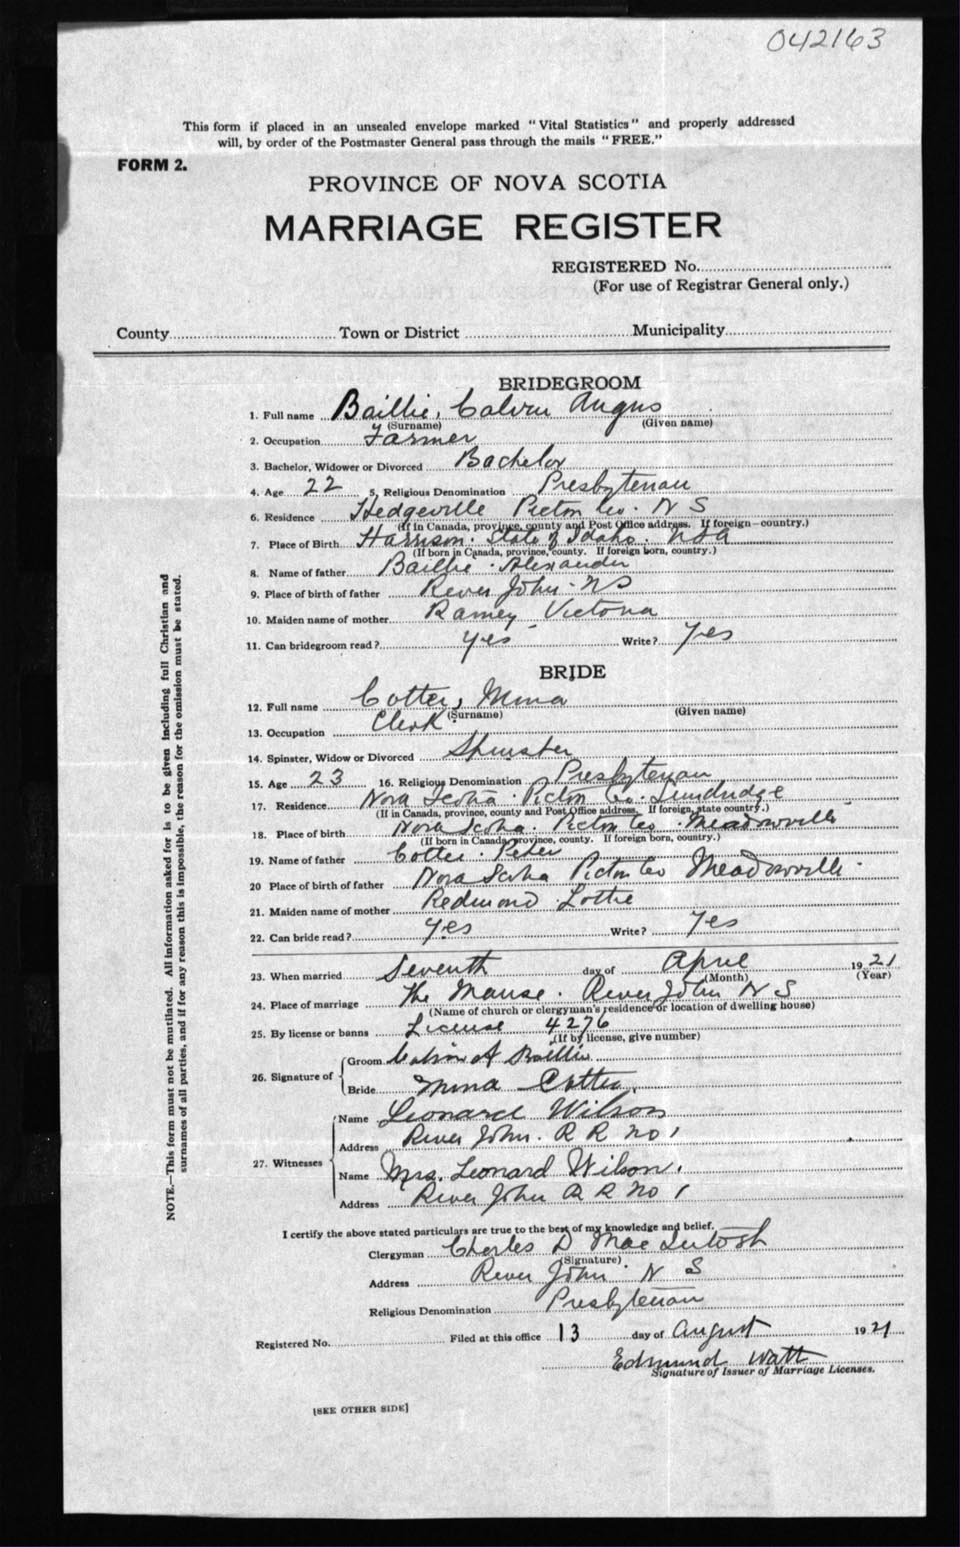 042163
This form if placed in an unsealed envelope marked "Vital Statistics" and properly addressed
will, by order of the Postmaster General pass through the mails "FREE."
FORM 2.
PROVINCE OF NOVA SCOTIA
MARRIAGE REGISTER
REGISTERED No.
(For use of Registrar General only.)
County Town or District Municipality
BRIDEGROOM
1. Full name Baillie, Calvin Angus
(Surname) (Given name)
2. Occupation Farmer
3. Bachelor, Widower or Divorced Bachelor
4. Age 22 5. Religious Denomination Presbyterian
6. Residence Hedgeville Pictou Co. N S
(If in Canada, province, county and Post Office address. If foreign—country.)
7. Place of Birth Harrison. State of Idaho.
(If born in Canada, province, county. If foreign born, country.)
8. Name of father Baillie. Alexander
9. Place of birth of father River John. NS
10. Maiden name of mother Ramey Victoria
11. Can bridegroom read? yes Write? yes
BRIDE
12. Full name Cotter, Mina
(Surname) (Given name)
13. Occupation Clerk
14. Spinster, Widow or Divorced Spinster
15. Age 23 16. Religious Denomination Presbyterian
17. Residence Nova Scotia. Pictou Co.
(If in Canada, province, county and Post Office address. If foreign, state country.)
18. Place of birth Nova Scotia. Pictou Co. Meadowville
(If born in Canada province, county. If foreign born, country.)
19. Name of father Cotter. Peter
20 Place of birth of father Nova Scotia Pictou Co Meadowville.
21. Maiden name of mother Redmond Lottie
22. Can bride read? yes Write? yes
23. When married Seventh day of April 1921
(Month) (Year)
24. Place of marriage The Manse. River John N S
(Name of church or clergyman's residence or location of dwelling house)
25. By license or banns License 4276
(If by license, give number)
26. Signature of Groom Calvin A Baillie
Bride Mina Cotter.
27. Witnesses Name Leonard Wilson
Address River John. R R No 1
Name Mrs. Leonard Wilson.
Address River John R R No 1
I certify the above stated particulars are true to the best of my knowledge and belief.
Clergyman Charles D MacIntosh
(Signature)
Address River John N S
Religious Denomination Presbyterian
Registered No. Filed at this office 13 day of August 1921
Edmund Watt
Signature of Issuer of Marriage Licenses.
[SEE OTHER SIDE]
NOTE.—This form must not be mutilated. All information asked for is to be given including full Christian and
surnames of all parties, and if for any reason this is impossible, the reason for the omission must be stated.